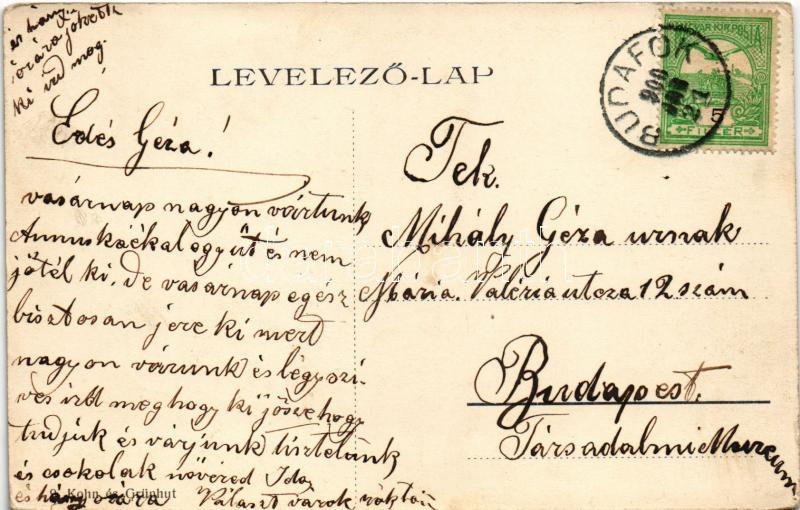 és hány
órára jövök
ki írd meg.
LEVELEZŐ-LAP
MAGYAR KIR. POSTA
BUDAFOK
5
FILLÉR
Edés Géza!
vasárnap nagyon vártunk
Annuskáékal együt és nem
jötél ki. de vasárnap egész
bisztosan jere ki mert
nagyon várunk és légyszi-
ves irdd meg hogy ki jössz e hogy
tudjuk és várjunk tisztelünk
és csokolak növéred Ida
és hány órára Választ várok
S. Kohn és Grünhut
Tek.
Mihály Géza urnak
Mária Valéria utcza 12 szám
Budapest.
Társadalmi Muzeum